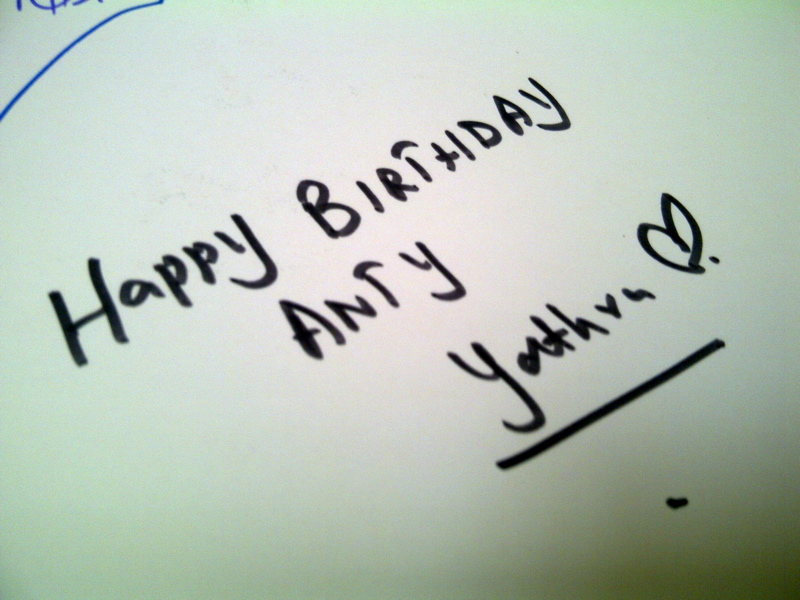 Happy BIRTHDAY
ANTY
Yathra